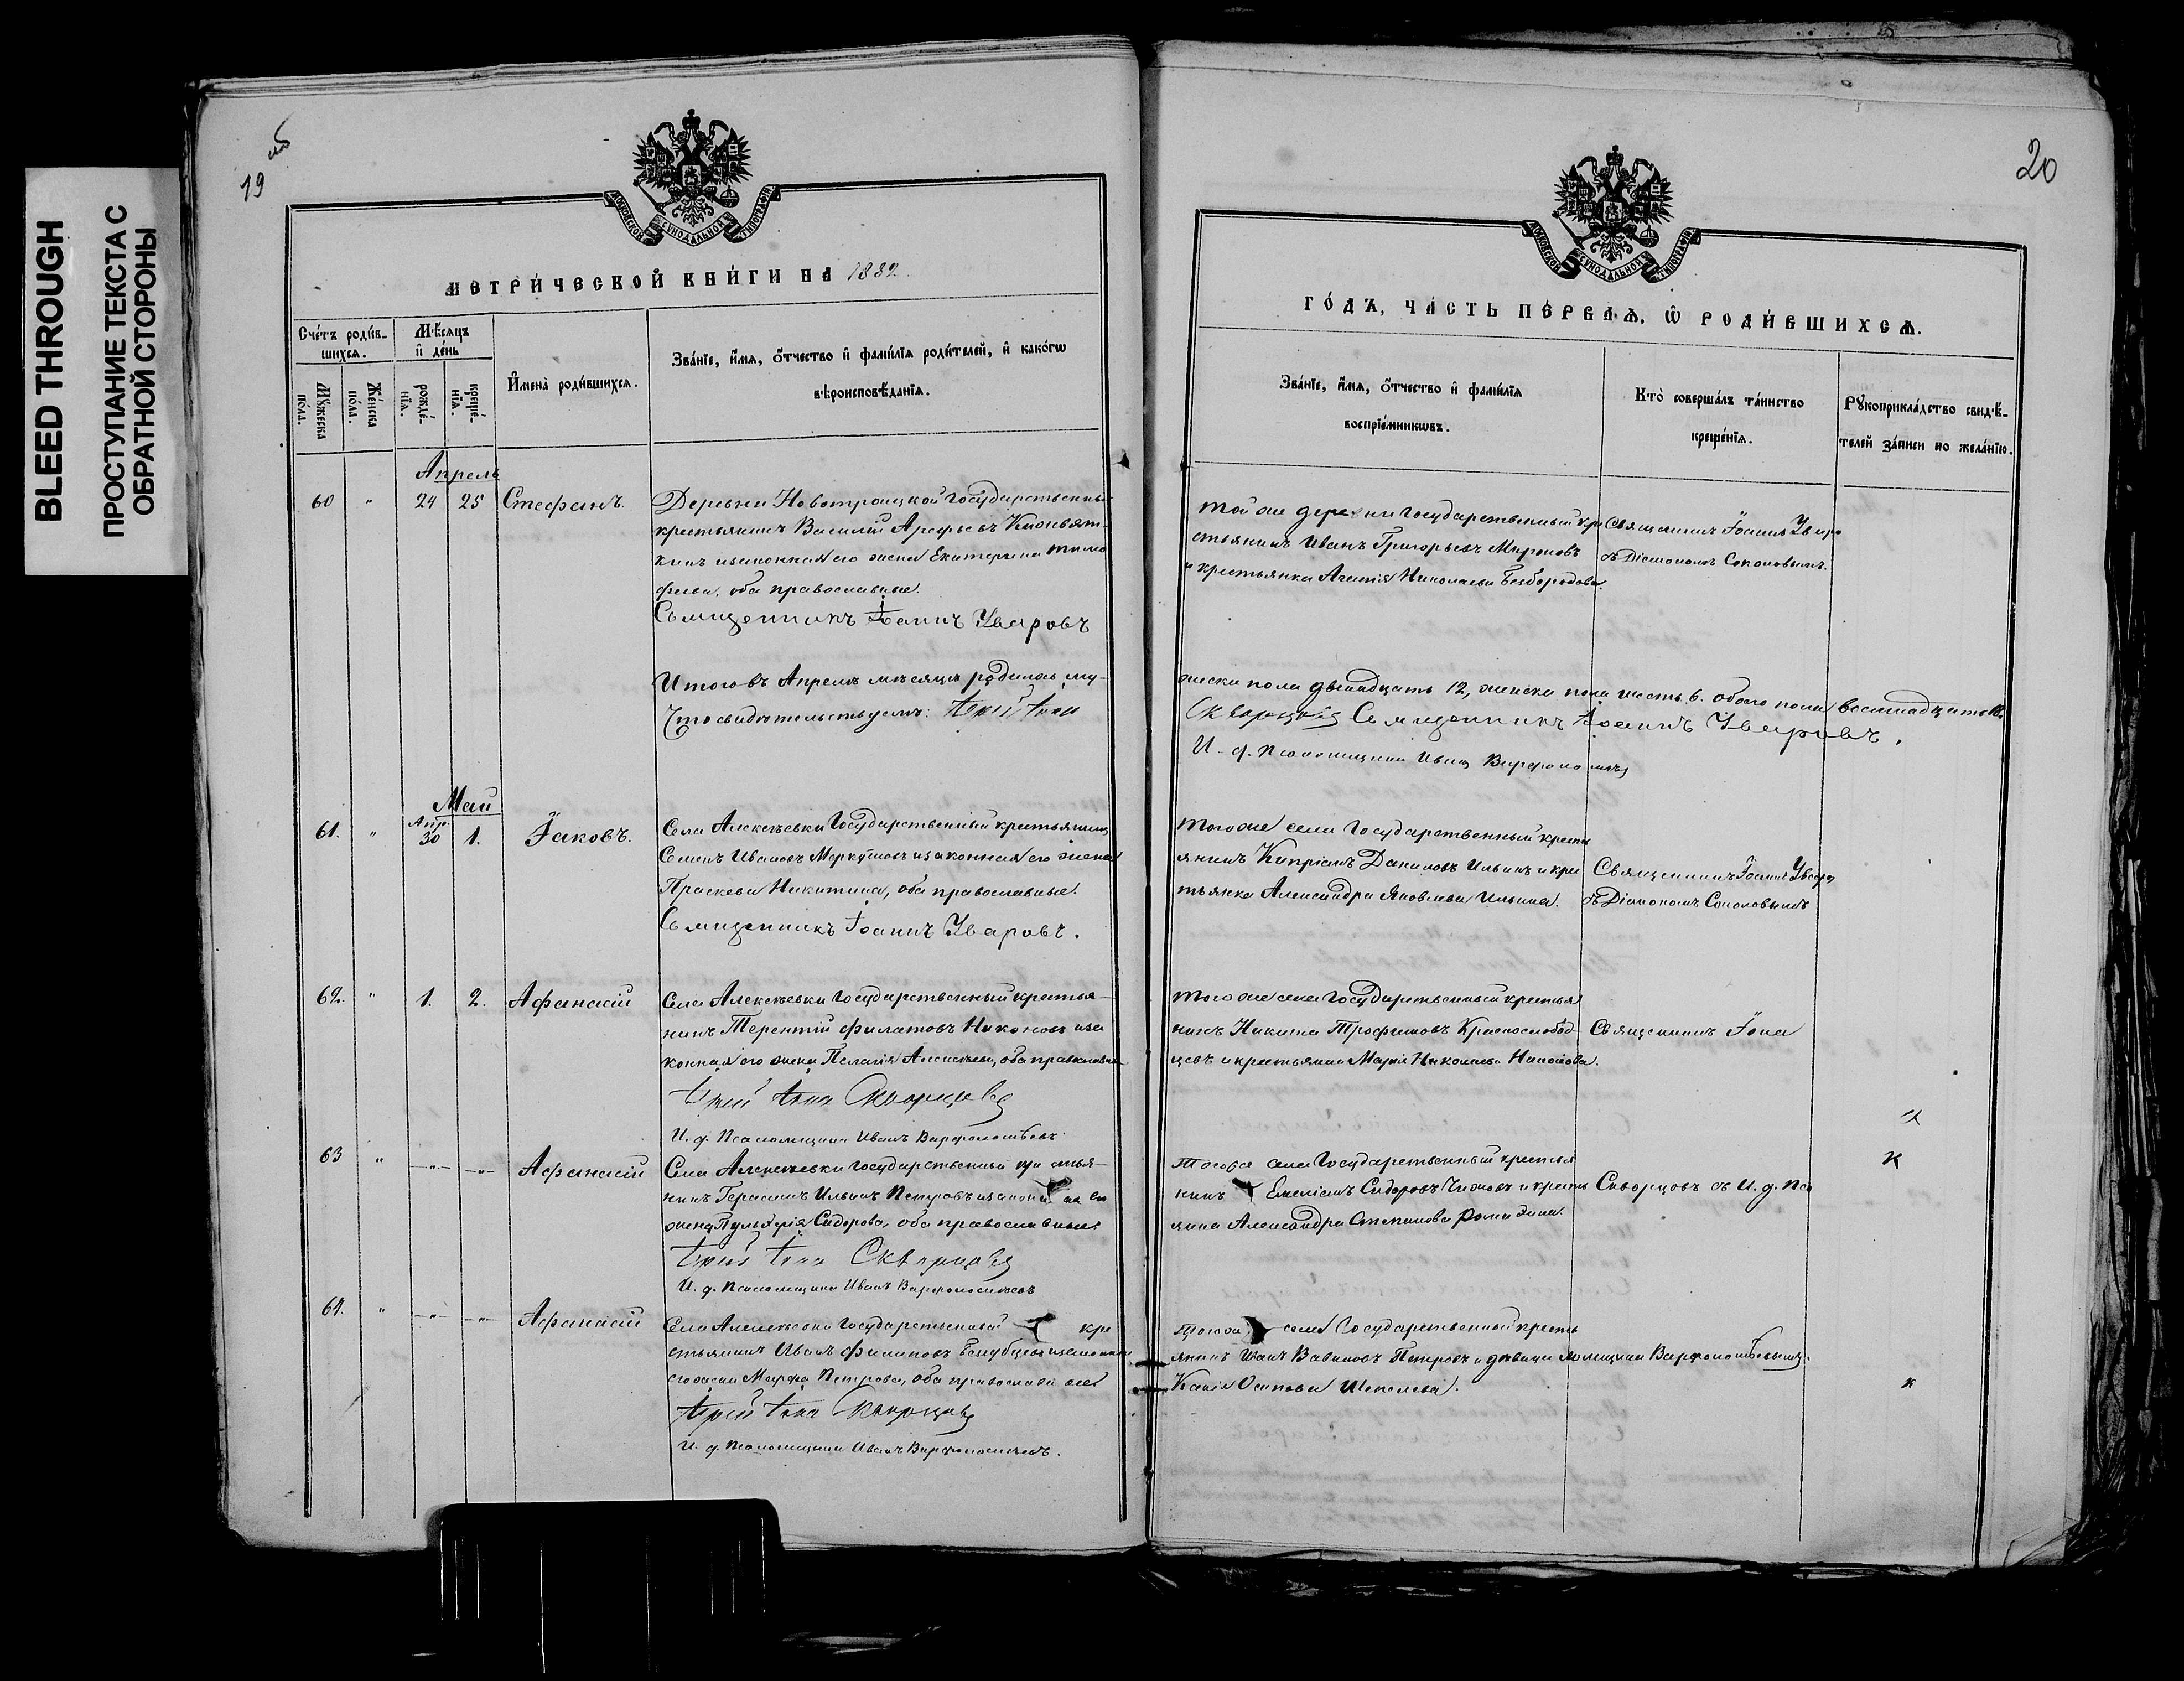 BLEED THROUGH
ПРОСТУПАНИЕ ТЕКСТА С
ОБРАТНОЙ СТОРОНЫ
19 об
МОСКОВСКОЙ СУНОДАЛЬНОЙ ТИПОГРАФІИ
МЕТРИ́ЧЕСКОЙ КНИ́ГИ НА 1882.
Сче́тъ роди́в-
шихся.
Мѣ́сяцъ
и҆ де́нь
Мꙋ́жеска
по́ла.
Же́нска
по́ла.
рожде́-
нїя.
креще́-
нїя.
И҆мена̀ роди́вшихся.
Зва́нїе, и҆́мя, ѻ҆́тчество и҆ фами́лїя роди́телей, и҆ како́гѡ
вѣроисповѣ́данїя.
Апрель
60 " 24 25 Стефанъ.
Деревни Новотроицкой Государственный
крестьянинъ Василій Арефьевъ
законная его жена Екатерина Тимо
феева, оба православные.
Священникъ Іоаннъ Уваровъ
Итого въ Апрелѣ мѣсяцѣ родилось му-
Что свидѣтельствуемъ: Іерей Іона
Май
61. " Апр. 30 1. Іаковъ.
Села Алексѣевки Государственный крестьянинъ
Семенъ Ивановъ Меркуловъ и законная его жена
Праскева Никитина, оба православные.
Священникъ Іоаннъ Уваровъ.
62. " 1. 2. Афанасій
Села Алексѣевки Государственный крестья-
нинъ Терентій Филатовъ Никоновъ и за
конная его жена Пелагія Алексѣева, оба православные
Іерей Іона Скворцовъ
И. д. Псаломщика Иванъ Варфоломѣевъ.
63 " -"- -"- Афанасій
Села Алексѣевки Государственный кре стья-
нинъ Герасимъ Ильинъ Петровъ и законн ая его
жена Пульхерія Сидорова, оба православные
Іерей Іона Скворцовъ
И. д. Псаломщика Иванъ Варфоломѣевъ
64. " -"- -"- Афанасій
Села Алексѣевки Государственный кре
стьянинъ Иванъ Филиповъ и законная
его жена Марфа Петрова, оба православные
Іерей Іона Скворцовъ
И. д. Псаломщика Иванъ Варфоломѣевъ.
20
МОСКОВСКОЙ СУНОДАЛЬНОЙ ТИПОГРАФІИ
ГО́ДЪ, ЧА́СТЬ ПЕ́РВАѦ, Ѡ҆ РОДИ́ВШИХСѦ.
Зва́нїе, и҆́мя, ѻ҆́тчество и҆ фами́лїя
воспрїе́мникѡвъ.
Кто̀ соверша́лъ та́инство
креще́нїя.
Рꙋкоприкла́дство свидѣ́-
телей за́писи по жела́нїю.
Той же деревни Государственный кре
стьянинъ Иванъ Григорьевъ Мироновъ
и крестьянка Агапія Николаева Безбородова.
Священникъ Іоаннъ Уваро
съ Діакономъ Соколовымъ.
жеска пола двенадцать 12, женска пола шесть 6. обоего пола восемнадцать 18.
Скворцовъ Священникъ Іоаннъ Уваровъ.
И. д. Псаломщика Иванъ Варфоломѣевъ
Того же села Государственный кресть
янинъ Кипріанъ Даниловъ Ильинъ и кре
стьянка Александра Яковлева Ильина.
Священникъ Іоаннъ Уваровъ
съ Діакономъ Соколовымъ
Того же села Государственный крестья
нинъ Никита Трофимовъ Краснослобод-
цевъ и крестьянка Марія Николаева Никонова.
Священникъ Іона
Того же села Государственный крестья
нинъ Емеліанъ Сидоровъ Чижовъ и кресть
янка Александра Степанова Ромадина.
Скворцовъ съ И. д. Пса
к
Того же села Государственный кресть
янинъ Иванъ Вавиловъ Петровъ и дѣвица
Ксенія Осипова Шепелева.
ломщика Варфоломѣевымъ.
к